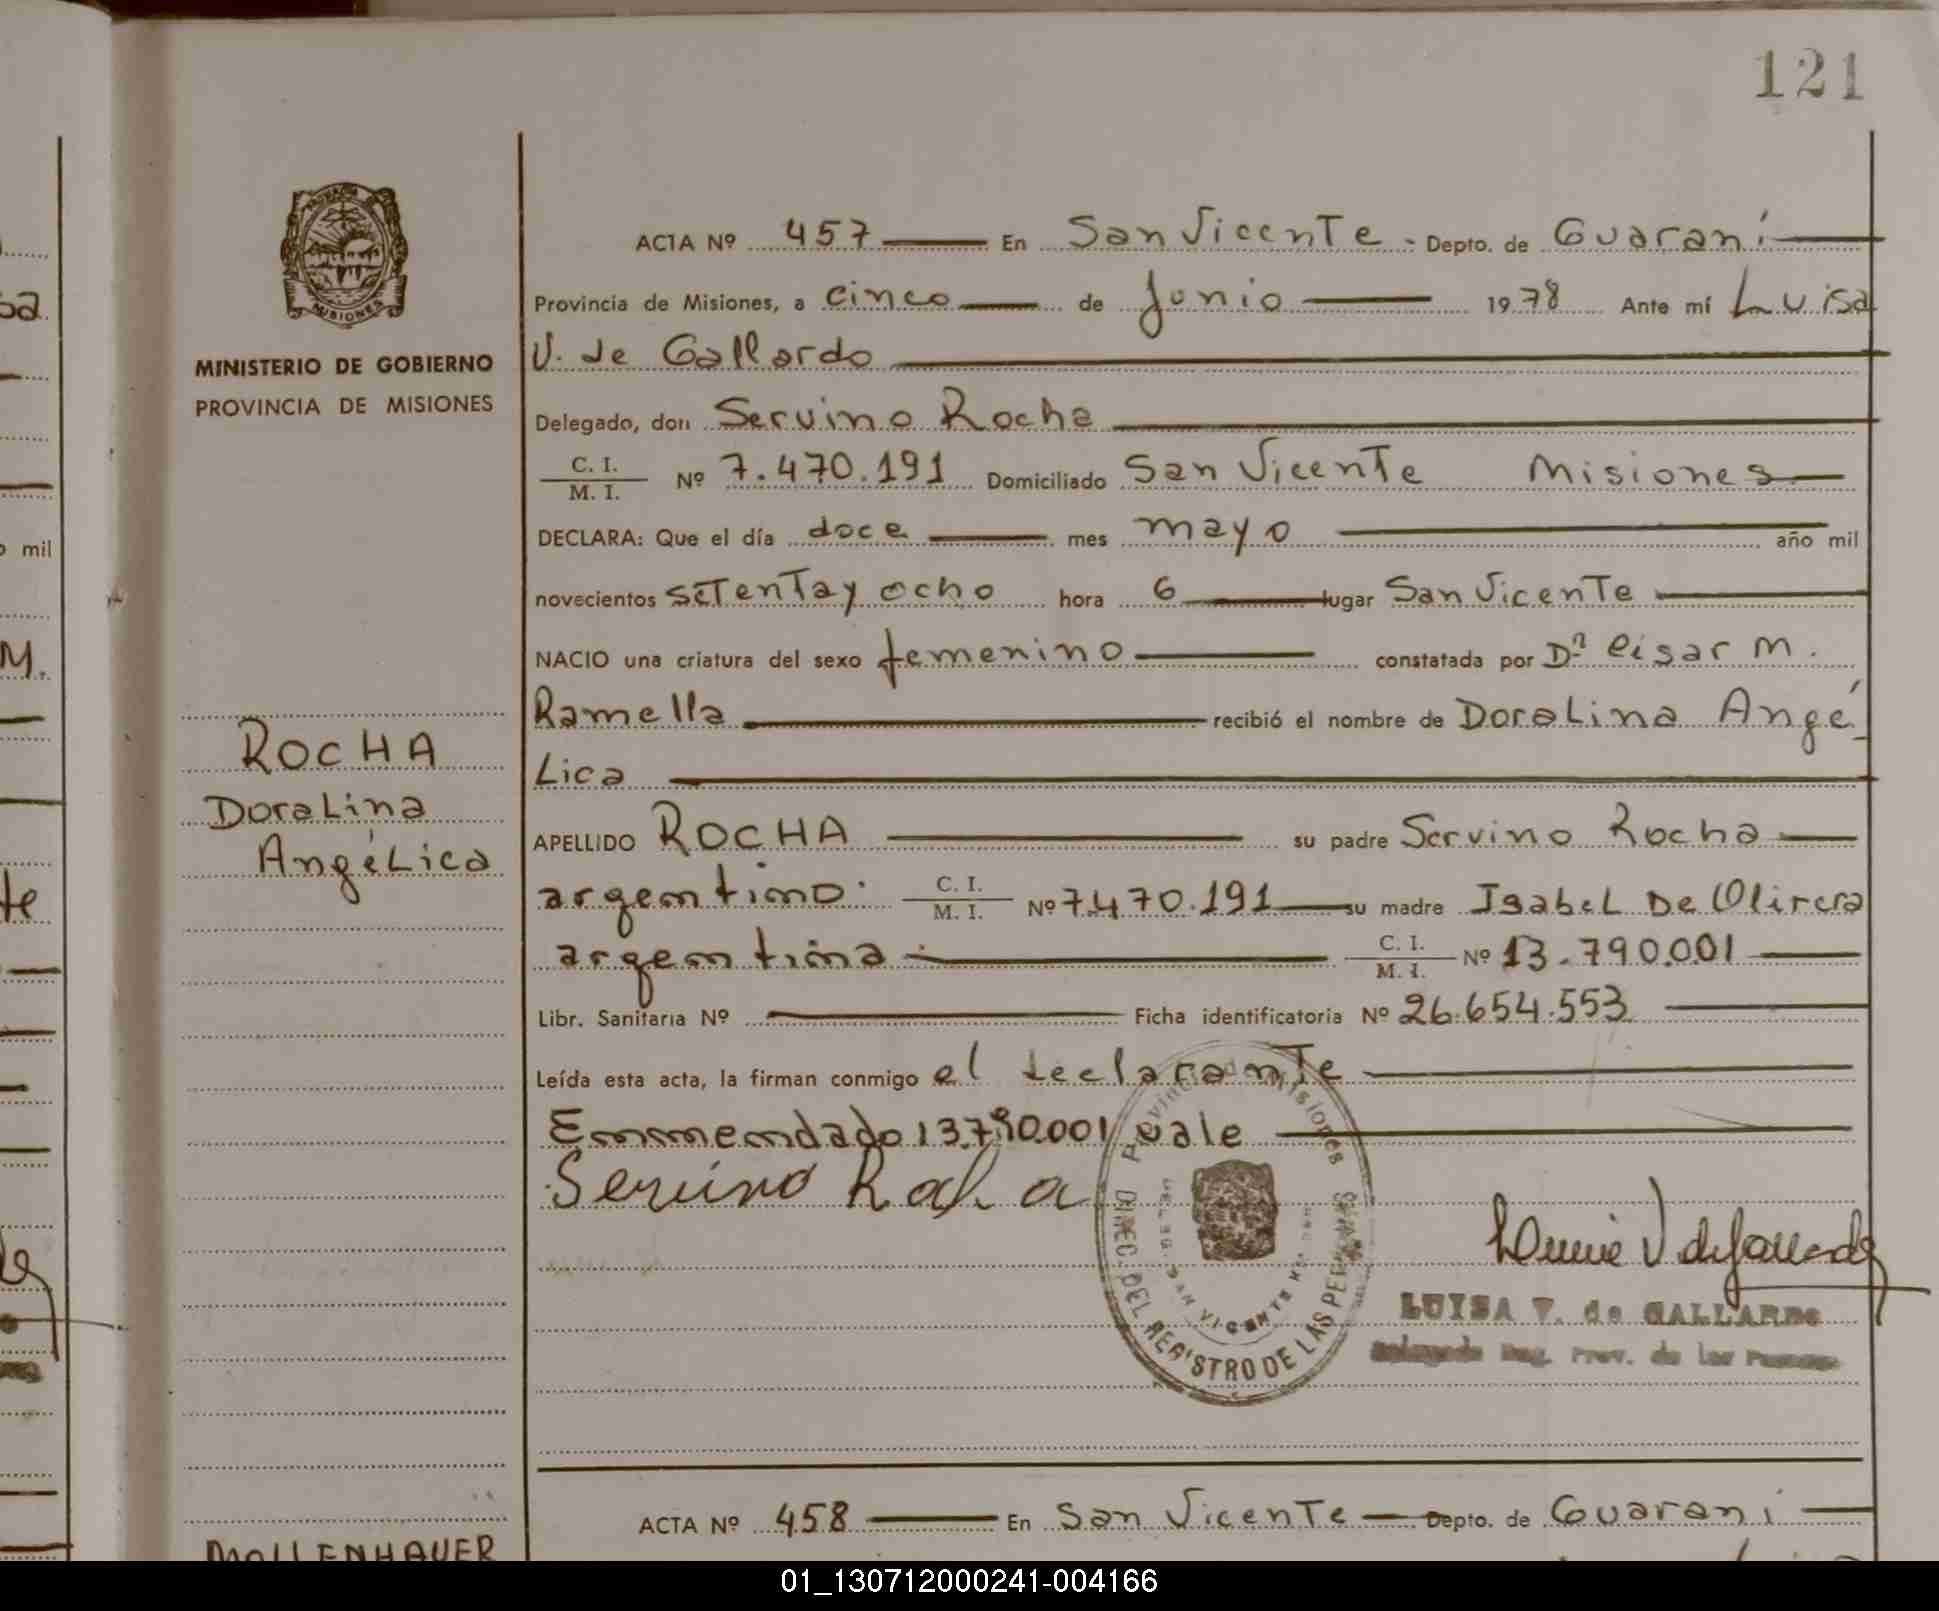 121
PROVINCIA
MISIONES
MINISTERIO DE GOBIERNO
PROVINCIA DE MISIONES
ROCHA
DoraLina
AngéLica
ACTA Nº 457 En San Vicente - Depto. de Guaraní
Provincia de Misiones, a cinco de Junio 1978 Ante mí Luisa
V. de Gallardo
Delegado, don Servino Rocha
C. I.
M. I. Nº 7.470.191 Domiciliado San Vicente Misiones
DECLARA: Que el día doce mes mayo año mil
novecientos setenta y ocho hora 6 lugar San Vicente
NACIO una criatura del sexo femenino constatada por Dº Cisar M.
Ramella recibió el nombre de DoraLina Angé
Lica
APELLIDO ROCHA su padre Servino Rocha
argentino. C. I.
M. I. Nº 7.470.191 su madre IsabeL De Olivera
argentina C. I.
M. I. Nº 13.790.001
Libr. Sanitaria Nº Ficha identificatoria Nº 26.654.553
Leída esta acta, la firman conmigo el declarante
Enmendado 13.790.001 vale
Servino Rocha
Provincia de Misiones
DIREC. DEL REGISTRO DE LAS PERSONAS
DELEG. SAN VICENTE
Luisa V de Gallardo
LUISA V. de GALLARDO
Delegada Reg. Prov. de las Personas
ACTA Nº 458 En San Vicente Depto. de Guaraní
MOLLENHAUER
01_130712000241-004166